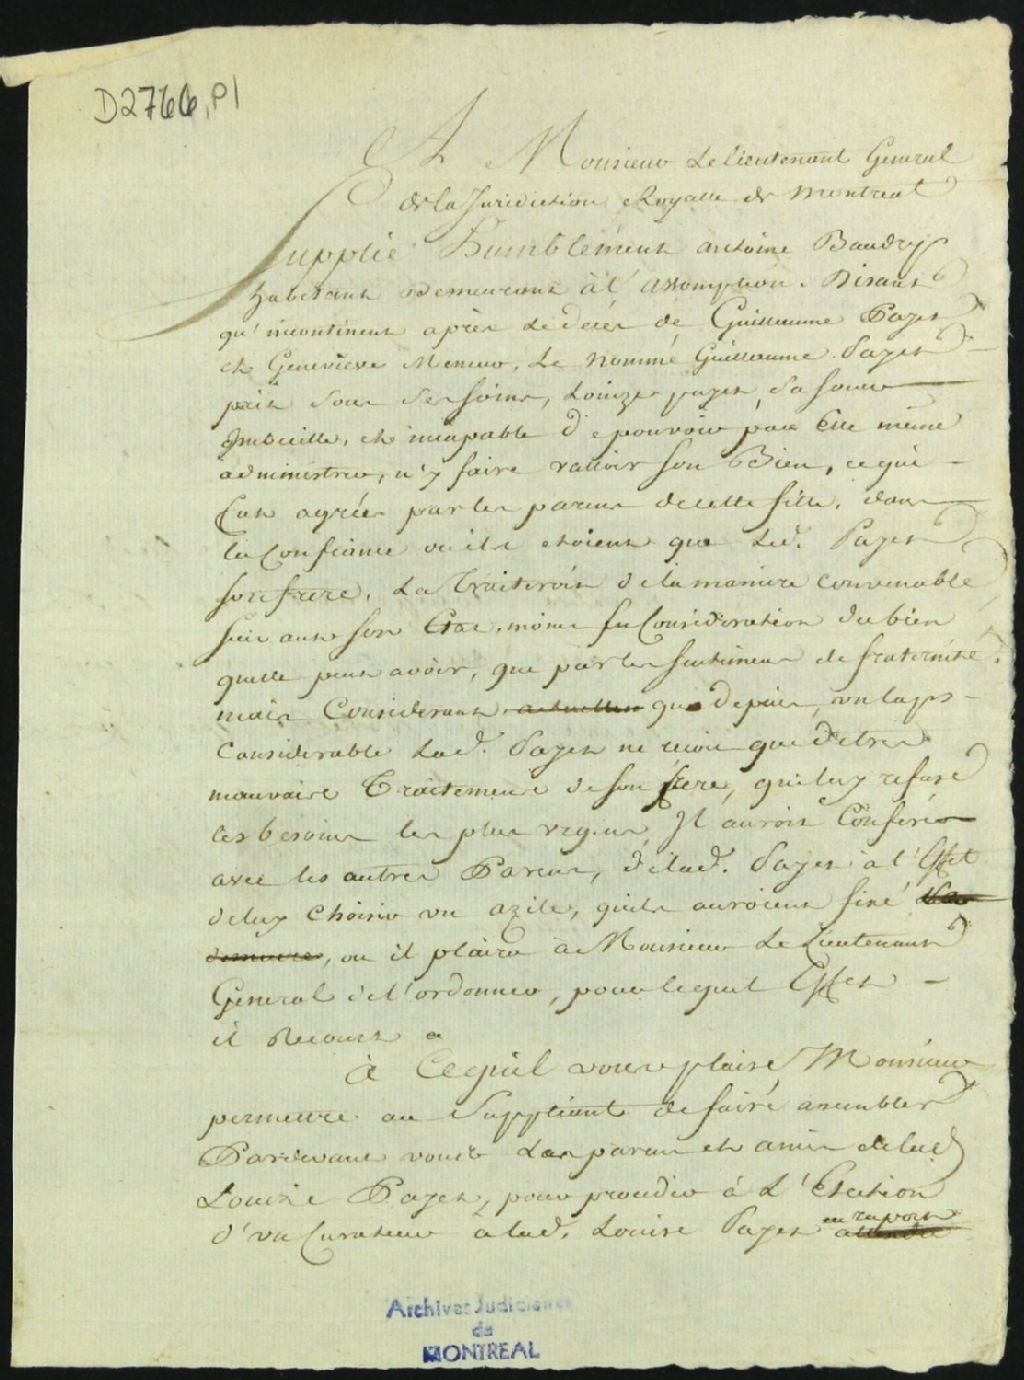 D2766, P1
A Monsieur Le lieutenant General
de la Juridiction Royalle de montreal
Supplie humblement antoine Baudry
habitant demeurant à l'assomption. Disant
qu'incontinent après le deces de Guillaume Payet
et Genevieve Meneur, Le nommé Guillaume Payet
prit sous ses soins, Louize payet, sa soeur
imbecille, et incapable de pouvoir par Elle même
administrer, n'y faire valloir son Bien, ce qui
fut agréer par les parens de cette fille, dans
la Confiance ou ils etoient que Led. Payet
son frere, La traiteroit de la maniere convenable
suivant son Etat, même en Consideration du bien
quelle peut avoir, que par les sentimens de fraternité.
mais Considerant que depuis, un laps
Considerable Lad. Payet ne recoit que d'etres
mauvais Traitement de son frere, qui luy refuse
les besoins les plus urgens, Il auroit Conferé
avec les autres Parens, de lad. Payet à l'Effet
de luy choisir un azile, quils auroient fixé
ou il plaira à Monsieur Le Lieutenant
General de l'ordonner, pour lequel Effet
il Recourt a
à Ce quil vous plaise Monsieur
permettre au Suppliant de faire assembler
Pardevant vous Les parens et amis de lad.
Louise Payet, pour proceder à L'Election
d'un Curateur a lad. Louise Payet
Archives Judiciaires
de
MONTREAL